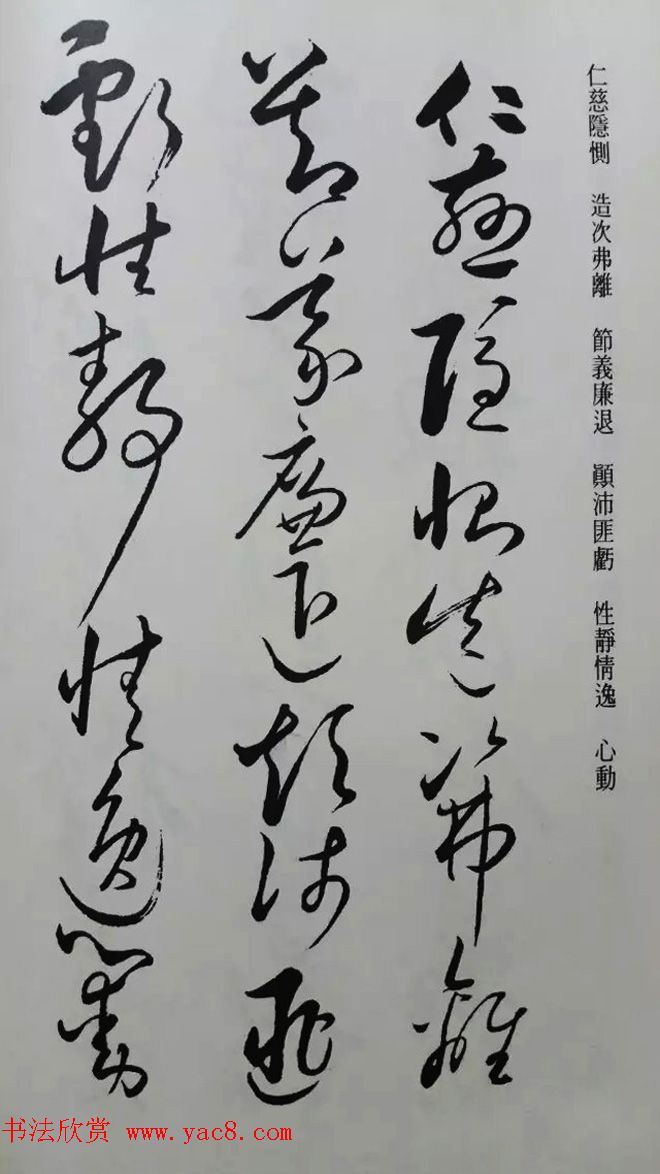 仁慈隱惻 造次弗離 節義廉退 顛沛匪虧 性靜情逸 心動
仁慈隱惻造次弗離
節義廉退顛沛匪
虧性靜情逸心動
书法欣赏 www.yac8.com